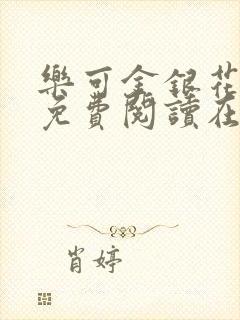 樂可金銀花
免費閱讀在
肖婷